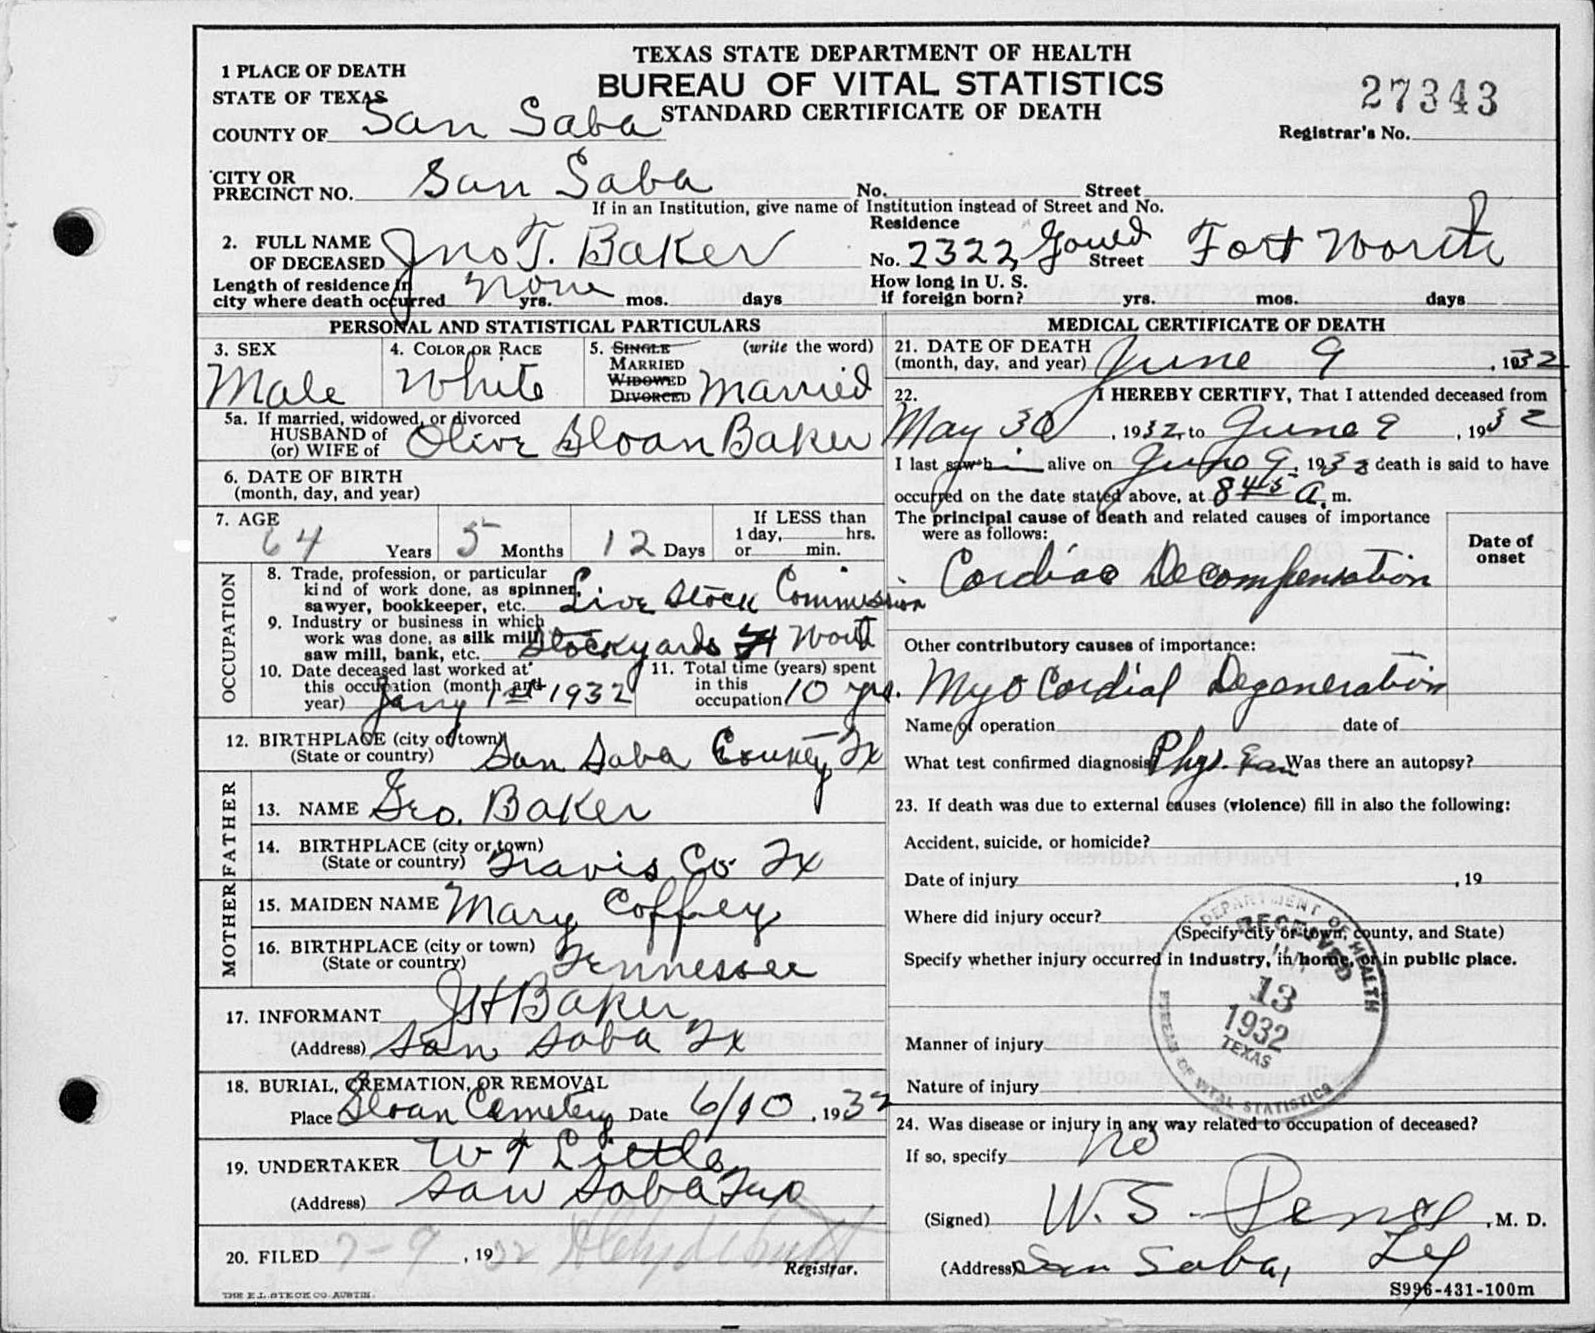 TEXAS STATE DEPARTMENT OF HEALTH
BUREAU OF VITAL STATISTICS
STANDARD CERTIFICATE OF DEATH
27343
Registrar's No.
1 PLACE OF DEATH
STATE OF TEXAS
COUNTY OF San Saba
CITY OR
PRECINCT NO. San Saba No. Street
If in an Institution, give name of Institution instead of Street and No.
2. FULL NAME
OF DECEASED Jno T. Baker
Residence
No. 2322 Gould Street Fort Worth
Length of residence in
city where death occurred None yrs. mos. days
How long in U. S.
if foreign born? yrs. mos. days
PERSONAL AND STATISTICAL PARTICULARS
3. SEX
Male
4. COLOR OR RACE
White
5. SINGLE (write the word)
MARRIED
WIDOWED
DIVORCED Married
5a. If married, widowed, or divorced
HUSBAND of
(or) WIFE of Olive Sloan Baker
6. DATE OF BIRTH
(month, day, and year)
7. AGE
64 Years 5 Months 12 Days
If LESS than
1 day, hrs.
or min.
OCCUPATION
8. Trade, profession, or particular
kind of work done, as spinner,
sawyer, bookkeeper, etc. Live Stock Commission
9. Industry or business in which
work was done, as silk mill,
saw mill, bank, etc. Stockyards Ft Worth
10. Date deceased last worked at
this occupation (month and
year) Jany 1st 1932
11. Total time (years) spent
in this
occupation 10 yrs.
12. BIRTHPLACE (city or town)
(State or country) San Saba County Tx
FATHER
13. NAME Geo. Baker
14. BIRTHPLACE (city or town)
(State or country) Travis Co Tx
MOTHER
15. MAIDEN NAME Mary Coffey
16. BIRTHPLACE (city or town)
(State or country) Tennessee
17. INFORMANT J H Baker
(Address) San Saba Tx
18. BURIAL, CREMATION, OR REMOVAL
Place Sloan Cemetery Date 6/10, 1932
19. UNDERTAKER W T Little
(Address) San Saba
20. FILED 7-9, 1932
Registrar.
THE E.L. STECK CO. AUSTIN.
MEDICAL CERTIFICATE OF DEATH
21. DATE OF DEATH
(month, day, and year) June 9, 1932
22. I HEREBY CERTIFY, That I attended deceased from
May 30, 1932, to June 9, 1932
I last saw h i alive on June 9, 193 death is said to have
occurred on the date stated above, at 8 45 A. m.
The principal cause of death and related causes of importance
were as follows:
Date of
onset
Cardiac Decompensation
Other contributory causes of importance:
Myocordial Degeneration
Name of operation date of
What test confirmed diagnosis Phys. Exam Was there an autopsy?
23. If death was due to external causes (violence) fill in also the following:
Accident, suicide, or homicide?
Date of injury , 19
Where did injury occur?
(Specify city or town, county, and State)
Specify whether injury occurred in industry, in home, or in public place.
Manner of injury
Nature of injury
DEPARTMENT OF HEALTH
RECEIVED
13
1932
TEXAS
BUREAU OF VITAL STATISTICS
24. Was disease or injury in any way related to occupation of deceased?
If so, specify no
(Signed) W. S. , M. D.
(Address) San Saba, Tex
S996-431-100m